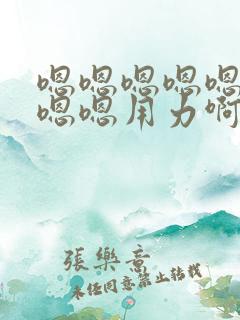 嗯嗯嗯嗯嗯
嗯嗯用力啊
張樂意
未经同意禁止转载